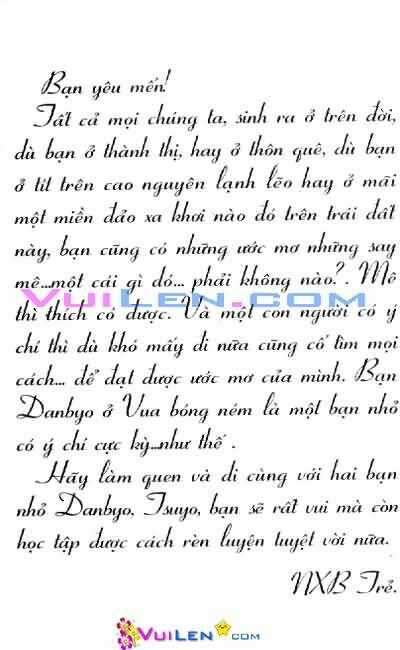 Bạn yêu mến!
Tất cả mọi chúng ta, sinh ra ở trên đời,
dù bạn ở thành thị, hay ở thôn quê, dù bạn
ở tít trên cao nguyên lạnh lẽo hay ở mãi
một miền đảo xa khơi nào đó trên trái đất
này, bạn cũng có những ước mơ những say
mê...một cái gì dó... phải không nào?. Mê
VuiLen.com
thì thích có được. Và một con người có ý
chí thì dù khó mấy di nữa cũng cố tìm mọi
cách... để đạt được ước mơ của mình. Bạn
Danbyo ở Vua bóng ném là một bạn nhỏ
có ý chí cực kỳ...như thế .
Hãy làm quen và di cùng với hai bạn
nhỏ Danbyo, Tsuyo, bạn sẽ rất vui mà còn
học tập được cách rèn luyện tuyệt vời nữa.
NXB Trẻ.
VuiLen.com